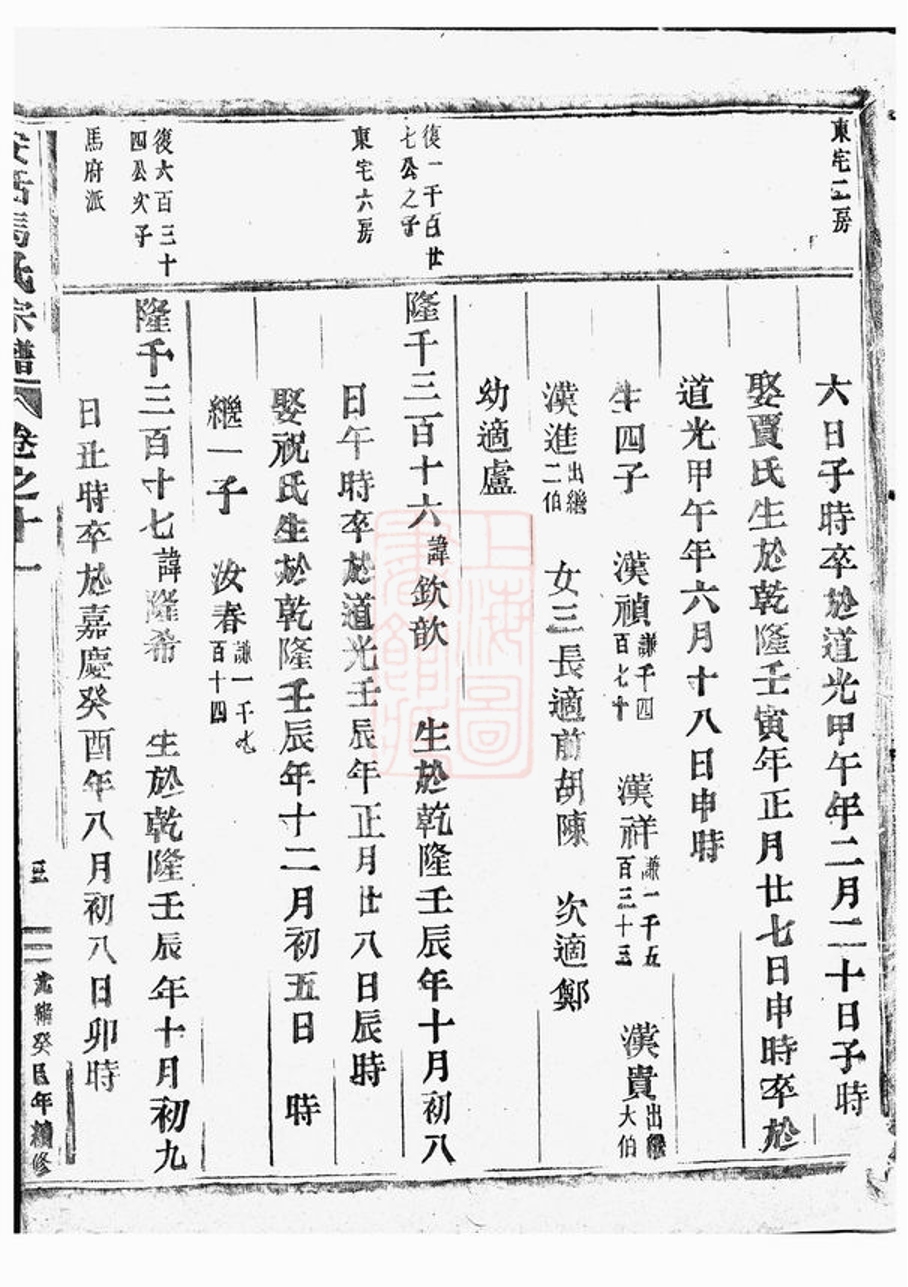 東宅二房
六日子時卒於道光甲午年二月二十日子時
娶賈氏生於乾隆壬寅年正月廿七日申時卒於
道光甲午年六月十八日申時
生四子 漢禎謙千四百七十 漢祥謙一千五百三十三 漢貴出繼大伯
漢進出繼二伯 女三長適前胡陳 次適鄭
幼適盧
復一千百廿七公之子
隆千三百十六諱欽歆 生於乾隆壬辰年十月初八
東宅六房
日午時卒於道光壬辰年正月廿八日辰時
娶祝氏生於乾隆壬辰年十二月初五日 時
繼一子 汝春謙一千九百十四
復六百三十四公次子
隆千三百十七諱隆希 生於乾隆壬辰年十月初九
馬府派
日丑時卒於嘉慶癸酉年八月初八日卯時
馬氏宗譜 卷之十一
三 光緒癸巳年續修
上海圖書館藏